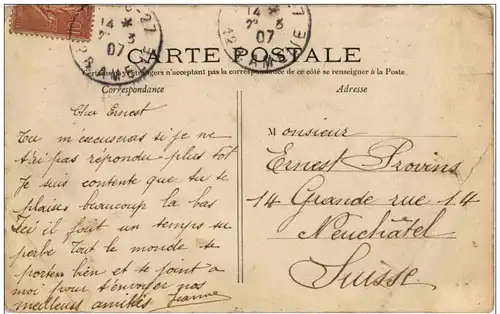 14 3
07
14 3
07
CARTE POSTALE
Certains pays étrangers n'acceptant pas la correspondance de ce côté se renseigner à la Poste.
Correspondance
Adresse
Cher Ernest
Tu m'excuseras si je ne
t'ai pas répondu plus tôt
Je suis contente que tu te
plaises beaucoup la bas
Ici il fait un temps su
perbe Tout le monde se
porte bien et se joint a
moi pour t'envoyer nos
meilleurs amitiés Jeanne
Monsieur
Ernest Provins
14 Grande rue 14
Neuchâtel
Suisse